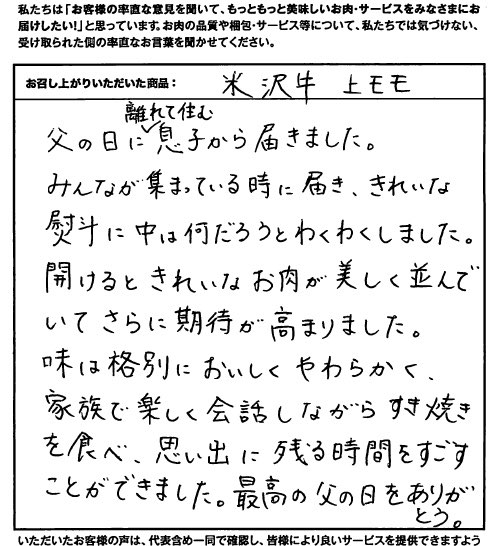 私たちは「お客様の率直な意見を聞いて、もっともっと美味しいお肉・サービスをみなさまにお
届けしたい!」と思っています。お肉の品質や梱包・サービス等について、私たちでは気づけない、
受け取られた側の率直なお言葉を聞かせてください。
お召し上がりいただいた商品： 米沢牛 上モモ
離れて住む
父の日に息子から届きました。
みんなが集まっている時に届き、きれいな
熨斗に中は何だろうとわくわくしました。
開けるときれいなお肉が美しく並んで
いてさらに期待が高まりました。
味は格別においしくやわらかく、
家族で楽しく会話しながらすき焼き
を食べ、思い出に残る時間をすごす
ことができました。最高の父の日をありが
とう。
いただいたお客様の声は、代表含め一同で確認し、皆様により良いサービスを提供できますよう